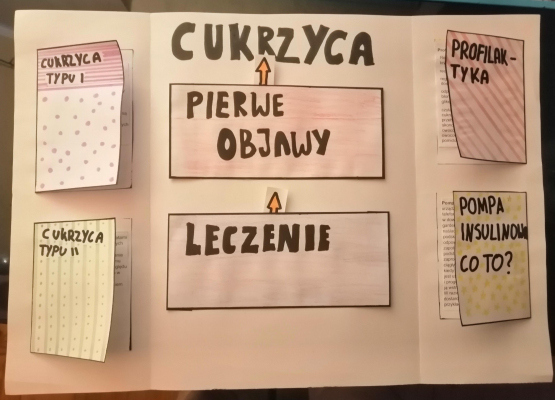 CUKRZYCA
CUKRZYCA
TYPU I
PIERWE
OBJAWY
PROFILAK-
TYKA
CUKRZYCA
TYPU II
LECZENIE
POMPA
INSULINOWA
CO TO?